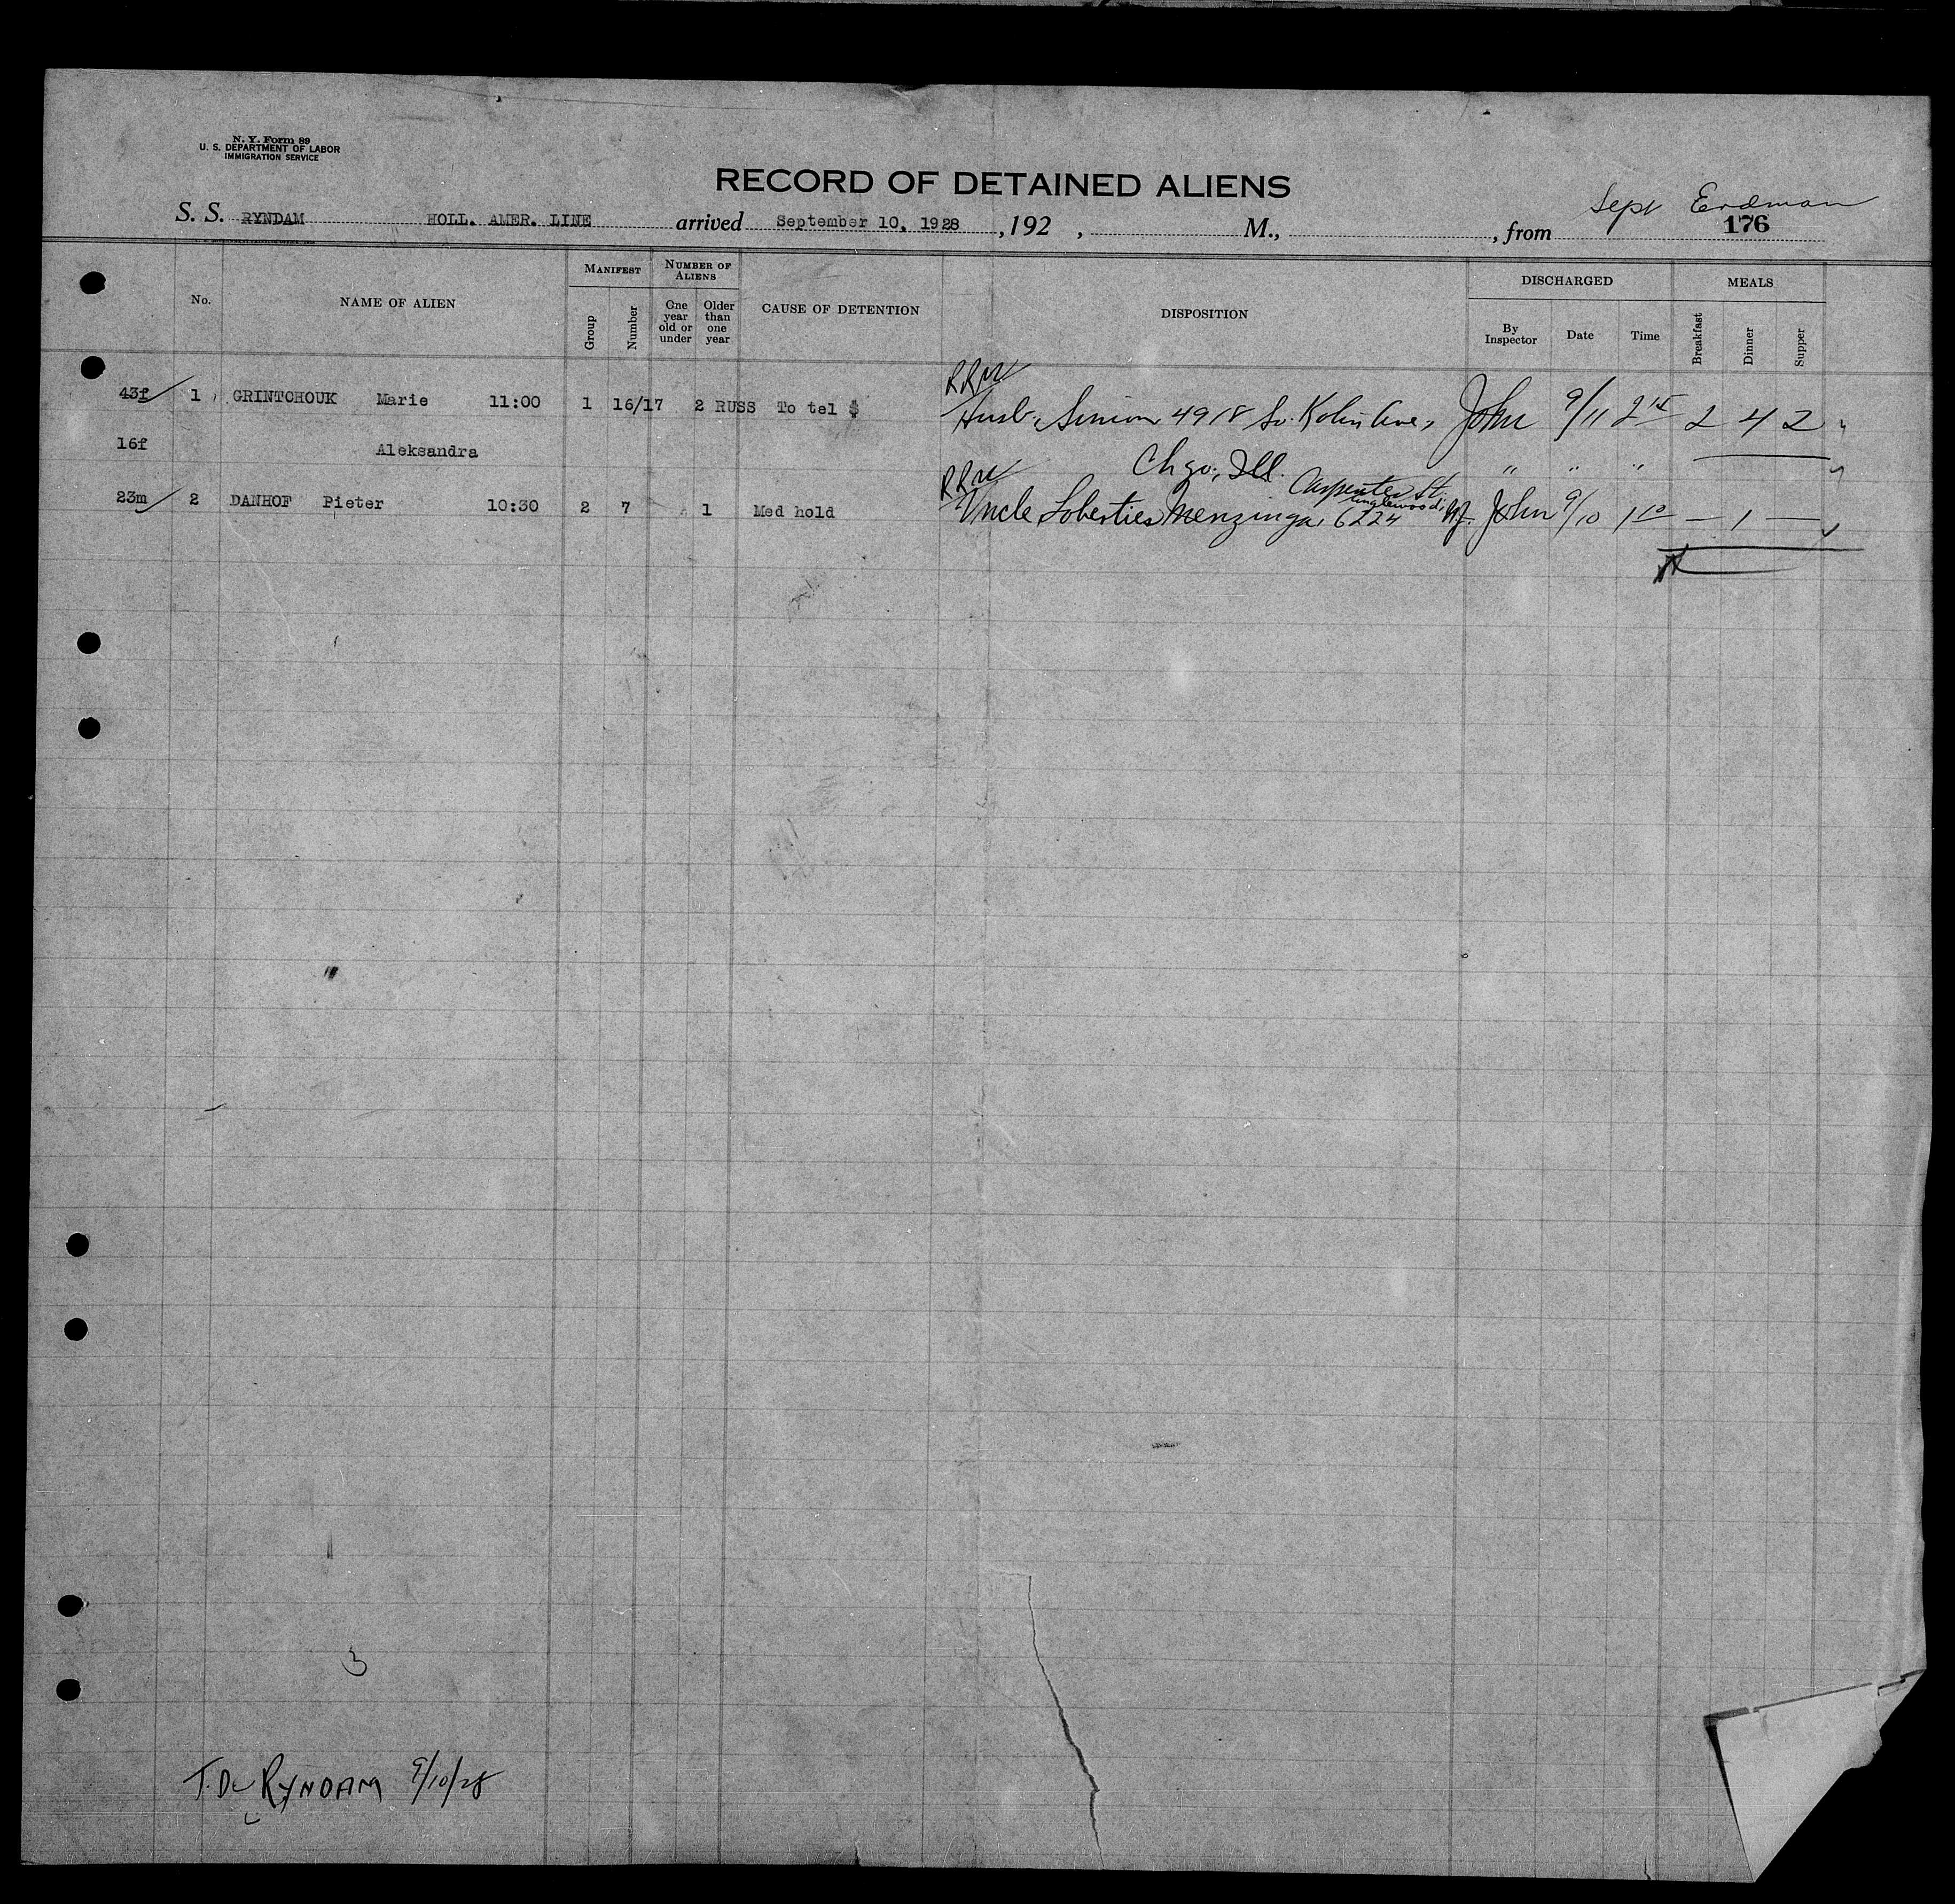 N. Y. Form 89
U. S. DEPARTMENT OF LABOR
IMMIGRATION SERVICE
RECORD OF DETAINED ALIENS
Sept Erdman
S. S. RYNDAM HOLL. AMER. LINE arrived September 10, 1928 , 192 , M., , from 176
No. NAME OF ALIEN MANIFEST NUMBER OF ALIENS CAUSE OF DETENTION DISPOSITION DISCHARGED MEALS
Group Number One year old or under Older than one year By Inspector Date Time Breakfast Dinner Supper
RRN
43f 1 GRINTCHOUK Marie 11:00 1 16/17 2 RUSS To tel $ Husb. Simion 4918 So. Kolin Ave, John 9/11 2 15 2 4 2
16f Aleksandra Chgo, Ill. " " "
RRN Carpenter St.
Englewood,
23m 2 DANHOF Pieter 10:30 2 7 1 Med hold Uncle Menzinga, 6224 John 9/10 1 10 — 1 —
3
T.D. RYNDAM 9/10/28